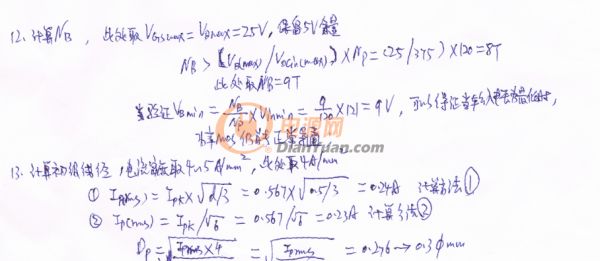 12. 计算NB, 此处取VGSmax=VBmax=25V, 保留5V余量
NB > (VB(max)/VDCin(max))×NP=(25/375)×120=8T
此处取NB=9T
验证VBmin=NB/NP×VINmin=9/120×121=9V, 可以保证当输入电压最低时,
功率MOS仍能正常导通
电源网
DianYuan.com
13. 计算初级线径, 电流密度取4~5A/mm², 此处取4A/mm
① IP(rms)=IPK×√d/3=0.567×√0.5/3=0.24A 计算方法①
② IP(rms)=IPK/√6=0.567/√6=0.23A 计算方法②
DP=√IPrms×4 =√IPrms =0.276→0.3φmm